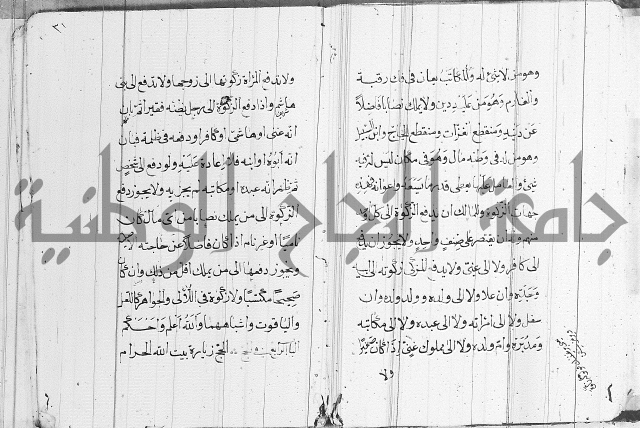 وهو من لا شئ له والمكاتب يعان في فك رقبة
والغارم وهو من عليه دين ولا يملك نصابا فاضلا
عن دينه ومنقطع الغزاة ومنقطع الحاج وابن السبيل
وهو من له في وطنه مال وهو في مكان ليس له فيه
شئ والعامل عليها يعطى قدر ما
جهات الزكوة وللمالك ان يدفع الزكوة الى كل
منهم وله ان يقتصر على صنف واحد ولا يجوز ان يدفع
الى كافر ولا الى غني ولا يدفع المزكي زكوته الى ابيه
وجده وان علا ولا الى ولده وولد ولده وان
سفل ولا الى امراته ولا الى عبده ولا الى مكاتبه
ومدبره وام ولده ولا الى مملوك غني اذا كان صغيرا
ولا
٣١
ولا تدفع المرأة زكوتها الى زوجها ولا تدفع الى بني
هاشم واذا دفع الزكوة الى رجل يظنه فقيرا ثم بان
انه غني او هاشمي او كافر او دفعه في ظلمة فبان
انه ابوه او ابنه فلا اعادة عليه ولو دفع الى شخص
ثم ظهر انه عبده او مكاتبه لم يجزيه ولا يجوز دفع
الزكوة الى من يملك نصابا من اي مال كان
ناميا او غير نام اذا كان فاضلا عن حاجته
ويجوز دفعها الى من يملك اقل من ذلك وان كان
صحيحا مكتسبا ولا زكوة في اللآلي والجواهر كاللعل
والياقوت واشباههما والله اعلم واحكم
الباب الرابع في الحج زيارة بيت الله الحرام
جامعة النجاح الوطنية